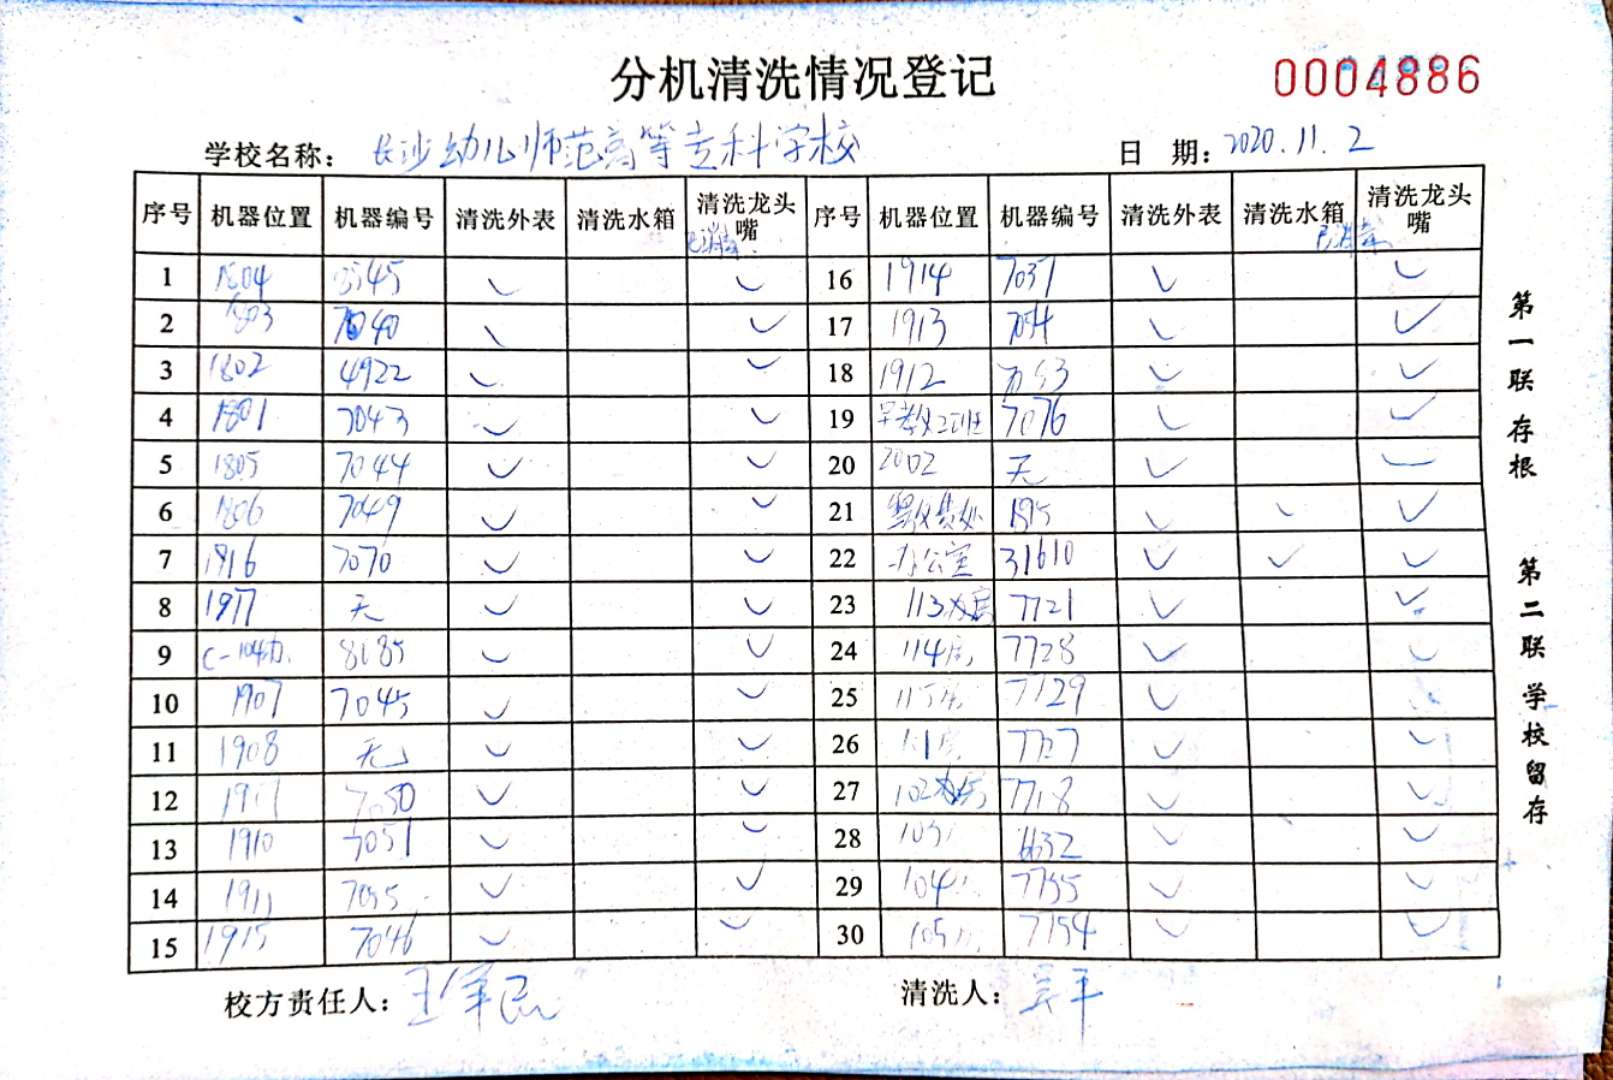 分机清洗情况登记
0004886
学校名称： 长沙幼儿师范高等专科学校
日 期：2020.11.2
序号 机器位置 机器编号 清洗外表 清洗水箱 清洗龙头嘴 序号 机器位置 机器编号 清洗外表 清洗水箱 清洗龙头嘴
1 1804 ✓ ✓ 16 1914 7037 ✓ ✓
2 1803 7040 ✓ ✓ 17 1913 ✓ ✓
3 1802 4922 ✓ ✓ 18 1912 ✓ ✓
4 1801 7043 ✓ ✓ 19 7076 ✓ ✓
5 1805 7044 ✓ ✓ 20 2002 无 ✓ ✓
6 1806 7049 ✓ ✓ 21 缴费处 ✓ ✓ ✓
7 1916 7070 ✓ ✓ 22 办公室 31610 ✓ ✓ ✓
8 1917 无 ✓ ✓ 23 7721 ✓ ✓
9 ✓ ✓ 24 7728 ✓ ✓
10 1907 7045 ✓ ✓ 25 7729 ✓
11 1908 无 ✓ ✓ 26 7727 ✓ ✓
12 7050 ✓ ✓ 27 7718 ✓ ✓
13 1910 7051 ✓ ✓ 28 6632 ✓ ✓
14 1911 7055 ✓ ✓ 29 7755 ✓ ✓
15 1915 7046 ✓ ✓ 30 7754 ✓ ✓
校方责任人：
清洗人：
第一联存根
第二联学校留存